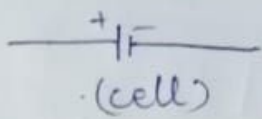 + −
(cell)